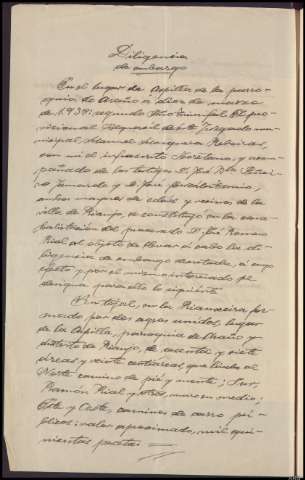 Diligencia
de embargo
En el lugar de Capilla de la parro-
quia de Araño a diez de marzo
de 1938: segundo Año Triunfal. El pro-
visional Alguacil de este Juzgado mu-
nicipal, Manuel
con mi el infrascrito Secretario, y acom-
pañado de los testigos D. José
y D. José
ambos mayores de edad y vecinos de la
villa de Rianjo, se constituyó en la casa
del procesado D. José Ramón
Rial al objeto de llevar a cabo la di-
ligencia de embargo decretada, a cuyo
efecto y por el mismo interesado se
designa para ello lo siguiente
Un tojal, en la Rianxeira for-
mado por dos agros unidos, lugar
de la Capilla, parroquia de Araño y
distrito de Rianjo, de ochenta y siete
áreas y veinte centiáreas, que linda al
Norte camino de pie y monte; Sur,
Ramón Rial y otros, muro en medio;
Este y Oeste, caminos de carro pú-
blicos: valor aproximado, mil qui-
nientas pesetas =